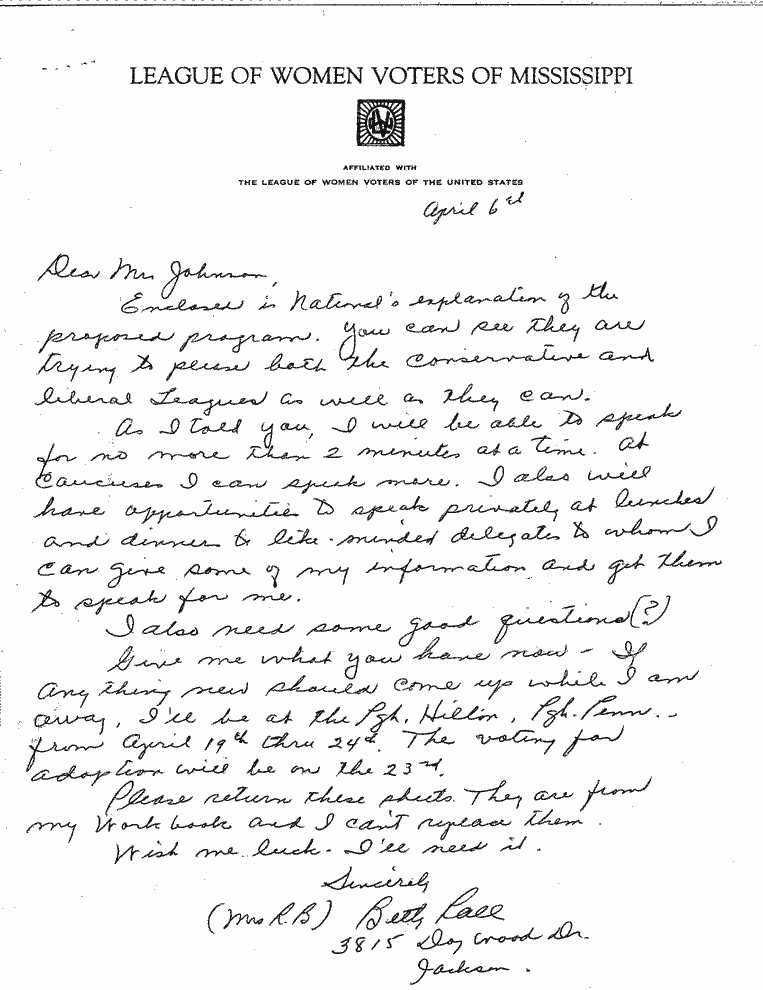 LEAGUE OF WOMEN VOTERS OF MISSISSIPPI
LWV
AFFILIATED WITH
THE LEAGUE OF WOMEN VOTERS OF THE UNITED STATES
April 6rd
Dear Mr. Johnson,
Enclosed is National's explanation of the
proposed program. You can see they are
trying to please both the conservative and
liberal Leagues as well as they can.
As I told you, I will be able to speak
for no more than 2 minutes at a time. At
Caucuses I can speak more. I also will
have opportunities to speak privately at lunches
and dinners to like-minded delegates to whom I
can give some of my information and get them
to speak for me.
I also need some good questions(?)
Give me what you have now - If
any thing new should come up while I am
away, I'll be at the Pgh. Hilton, Pgh. Penn. -
from April 19th thru 24th. The voting for
adoption will be on the 23rd.
Please return these sheets. They are from
my Work book and I can't replace them.
Wish me luck - I'll need it.
Sincerely
(Mrs R.B) Betty
3815 Dog wood Dr.
Jackson.